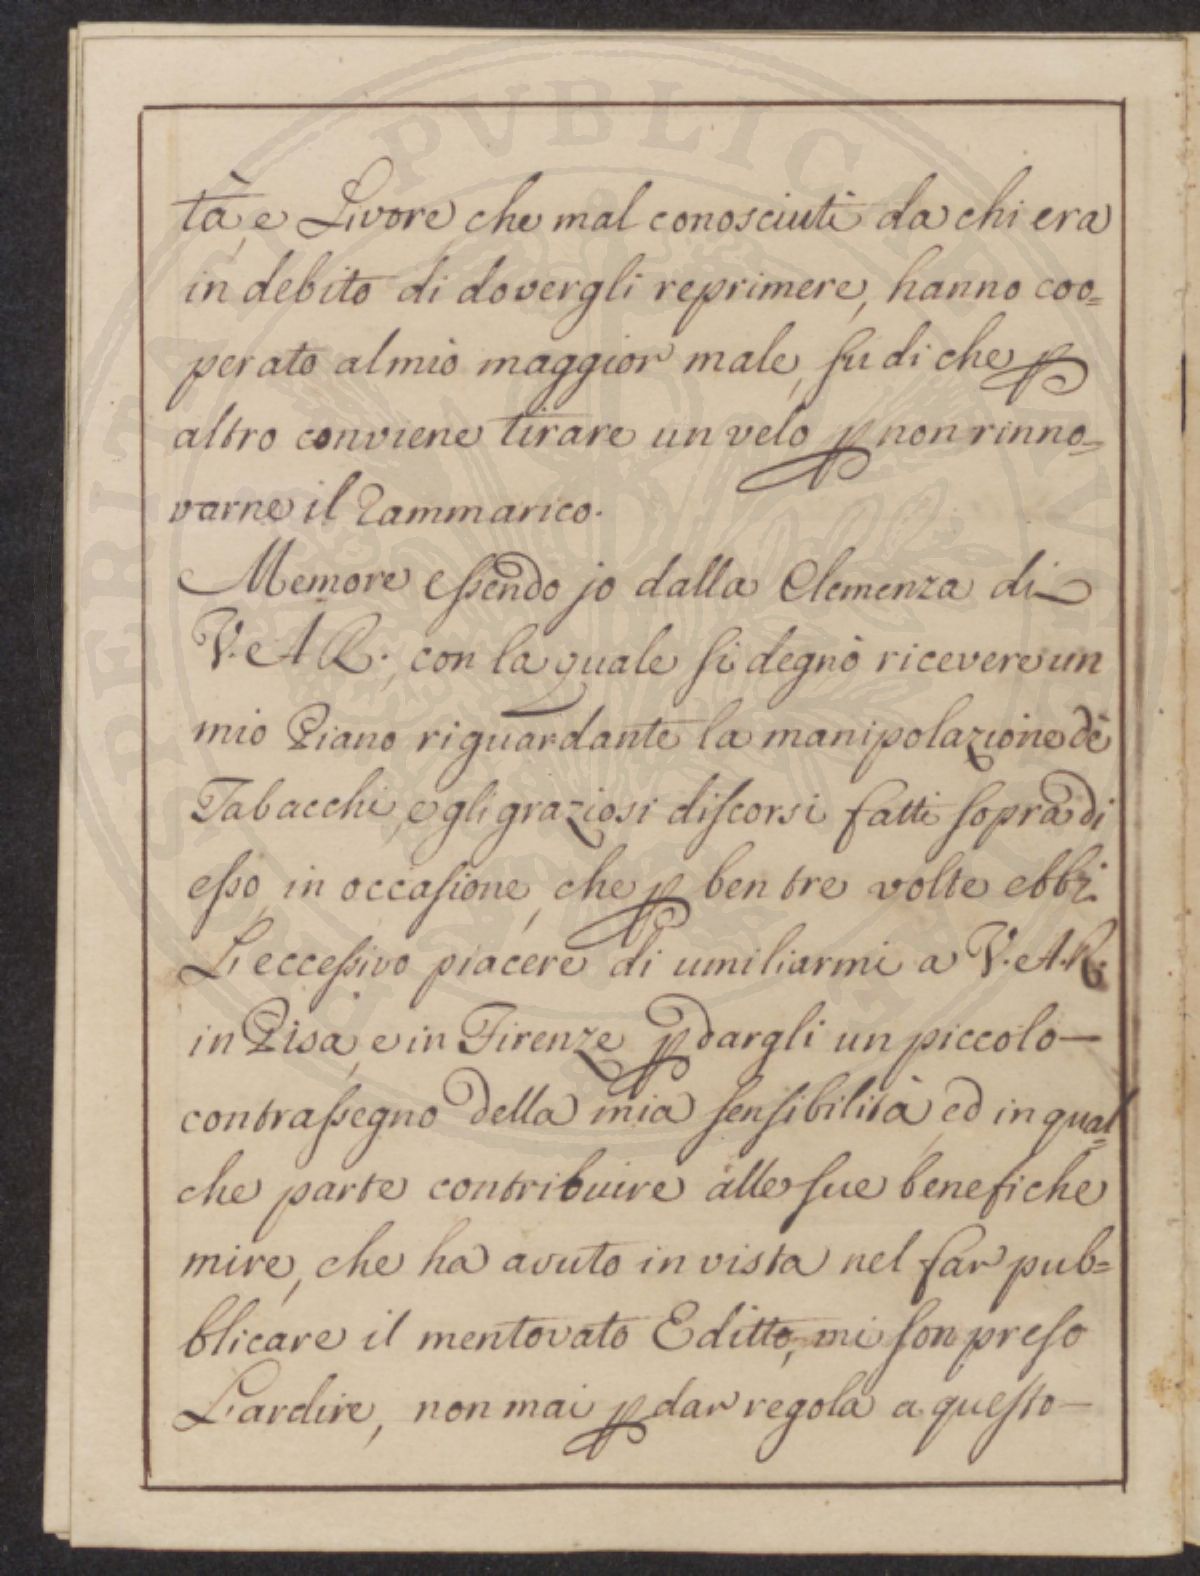 tà, e Livore, che mal conosciuti da chi era
in debito di dovergli reprimere, hanno coo=
perato al mio maggior male, su di che p
altro conviene tirare un velo p non rinno=
varne il Rammarico.
Memore essendo jo dalla Clemenza di
V. A. R., con la quale si degnò ricevere un
mio Piano riguardante la manipolazione de
Tabacchi, e gli graziosi discorsi fatti sopra di
esso, in occasione, che p ben tre volte ebbi
L'eccessivo piacere di umiliarmi a V. A. R.
in Pisa, e in Firenze p dargli un piccolo—
contrassegno della mia sensibilità, ed in qual=
che parte contribuire alle sue benefiche
mire, che ha avuto in vista nel far pub=
blicare il mentovato Editto, mi son preso
L'ardire, non mai p dar regola a questo—